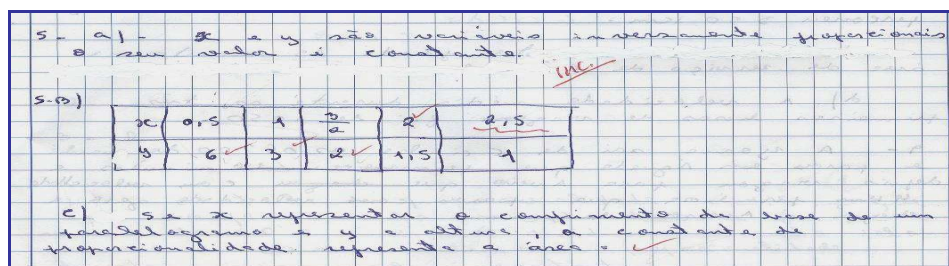 5- a) - x e y são variáveis inversamente proporcionais
o seu valor é constante.
inc.
5-b)
x 0,5 1 3/2 2 2,5
y 6 3 2 1,5 1
c) Se x representar o comprimento da base de um
paralelogramo e y a altura, a constante de
proporcionalidade representa a área.